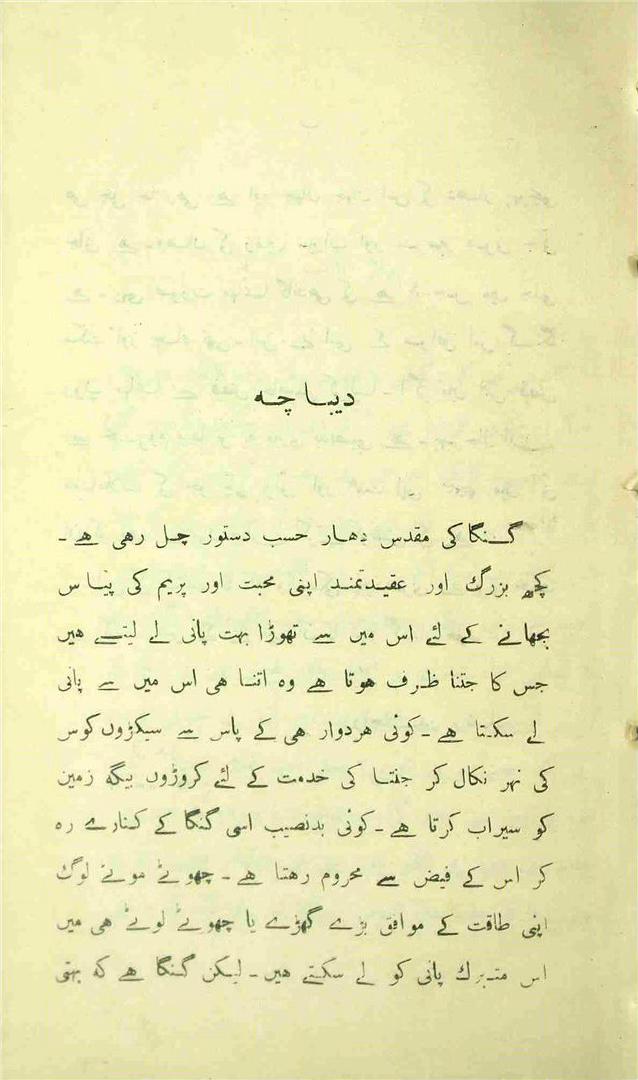 دیباچہ
گنگا کی مقدس دھار حسب دستور چل رھی ھے ۔
کچھ بزرگ اور عقیدتمند اپنی محبت اور پریم کی پیاس
بجھانے کے لئے اس میں سے تھوڑا بہت پانی لے لیتے ھیں
جس کا جتنا ظرف ھوتا ھے وہ اتنا ھی اس میں سے پانی
لے سکتا ھے ۔ کوئی ھردوار ھی کے پاس سے سیکڑوں کوس
کی نہر نکال کر جنتا کی خدمت کے لئے کروڑوں بیگہ زمین
کو سیراب کرتا ھے ۔ کوئی بدنصیب اسی گنگا کے کنارے رہ
کر اس کے فیض سے محروم رھتا ھے ۔ چھوٹے موٹے لوگ
اپنی طاقت کے موافق بڑے گھڑے یا چھوٹے لوٹے ھی میں
اس متبرک پانی کو لے سکتے ھیں ۔ لیکن گنگا ھے کہ بہتی